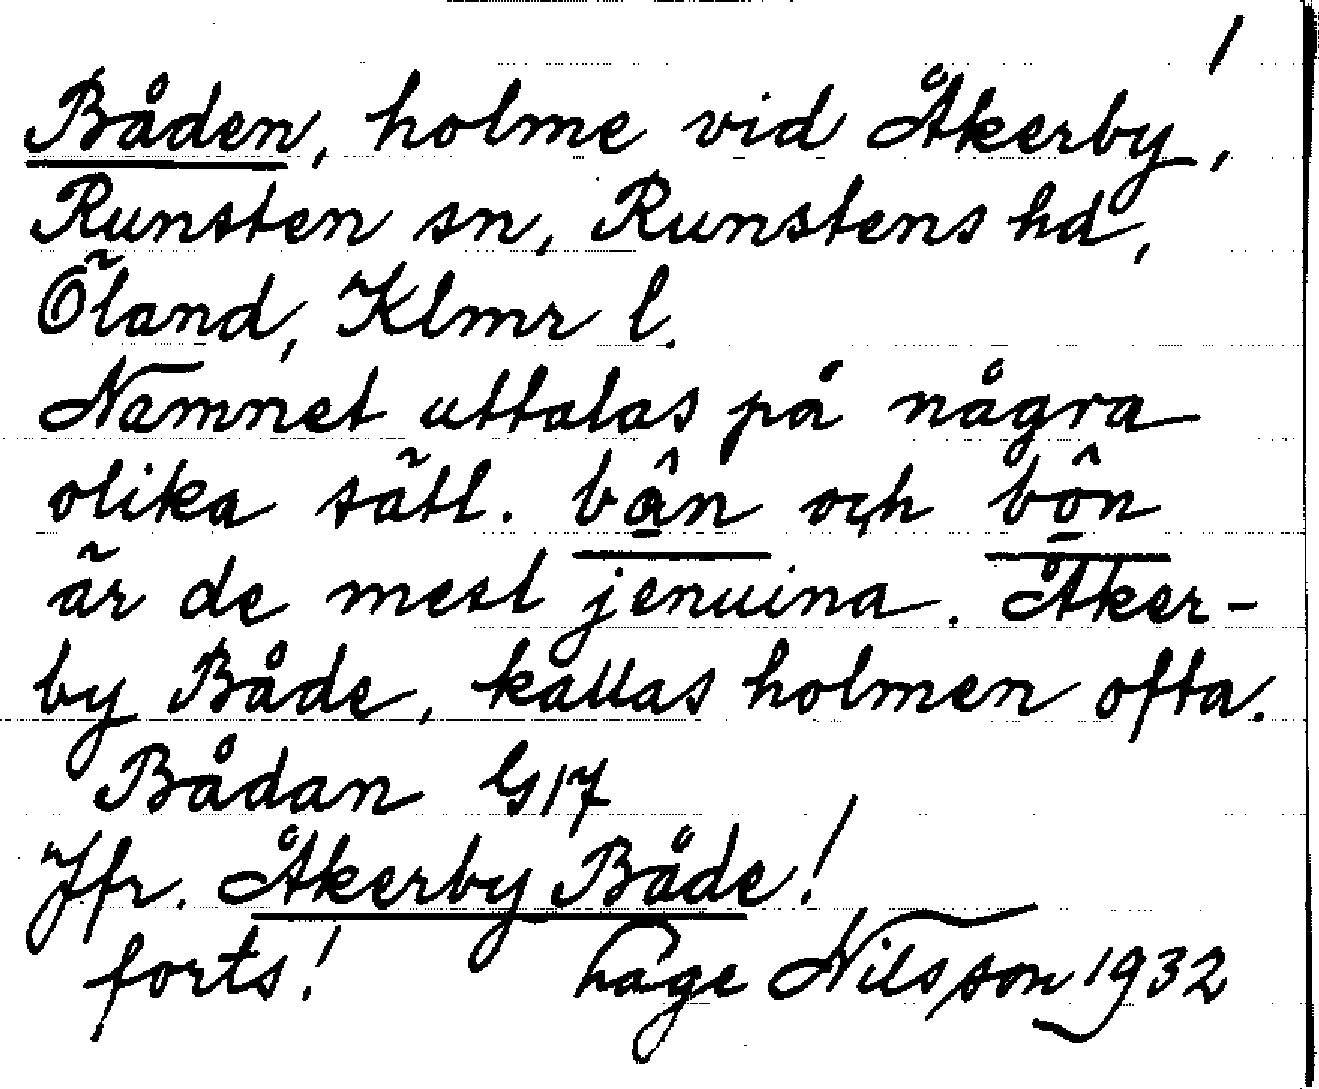 1
Båden, holme vid Åkerby,
Runsten sn, Runstens hd,
Öland, Klmr l.
Namnet uttalas på några
olika sätt. bân och bôn
är de mest jenuina. Åker-
by Både, kallas holmen ofta.
Bådan G17
Jfr. Åkerby Både!
forts! Håge Nilsson 1932